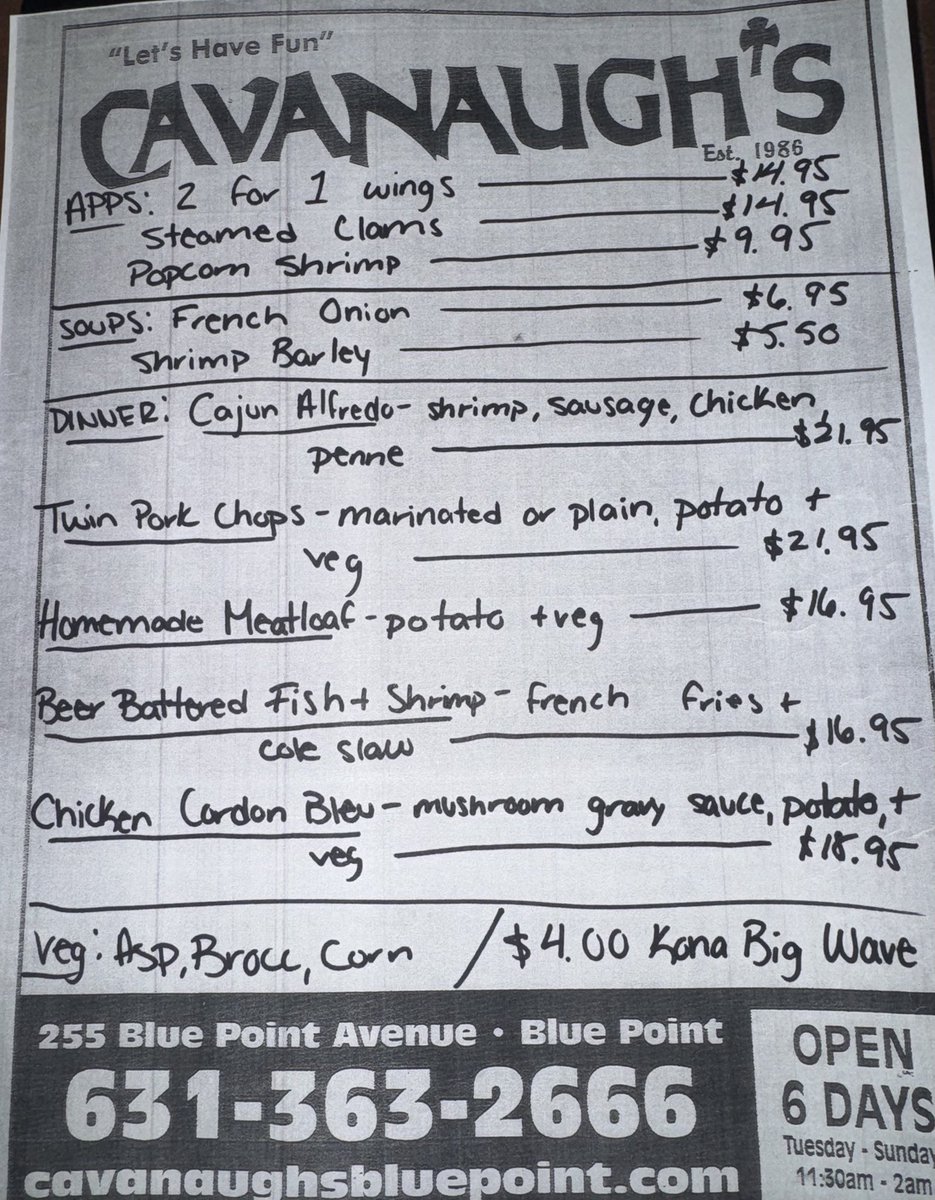 "Let's Have Fun"
CAVANAUGH'S
Est. 1986
APPS: 2 for 1 wings $14.95
Steamed Clams $14.95
Popcorn Shrimp $9.95
SOUPS: French Onion $6.95
Shrimp Barley $5.50
DINNER: Cajun Alfredo- shrimp, sausage, chicken,
penne $21.95
Twin Pork Chops - marinated or plain, potato +
veg $21.95
Homemade Meatloaf - potato + veg $16.95
Beer Battered Fish + Shrimp - french fries +
cole slaw $16.95
Chicken Cordon Bleu - mushroom gravy sauce, potato, +
veg $18.95
Veg: Asp, Brocc, Corn / $4.00 Kona Big Wave
255 Blue Point Avenue • Blue Point
631-363-2666
cavanaughsbluepoint.com
OPEN
6 DAYS
Tuesday - Sunday
11:30am - 2am